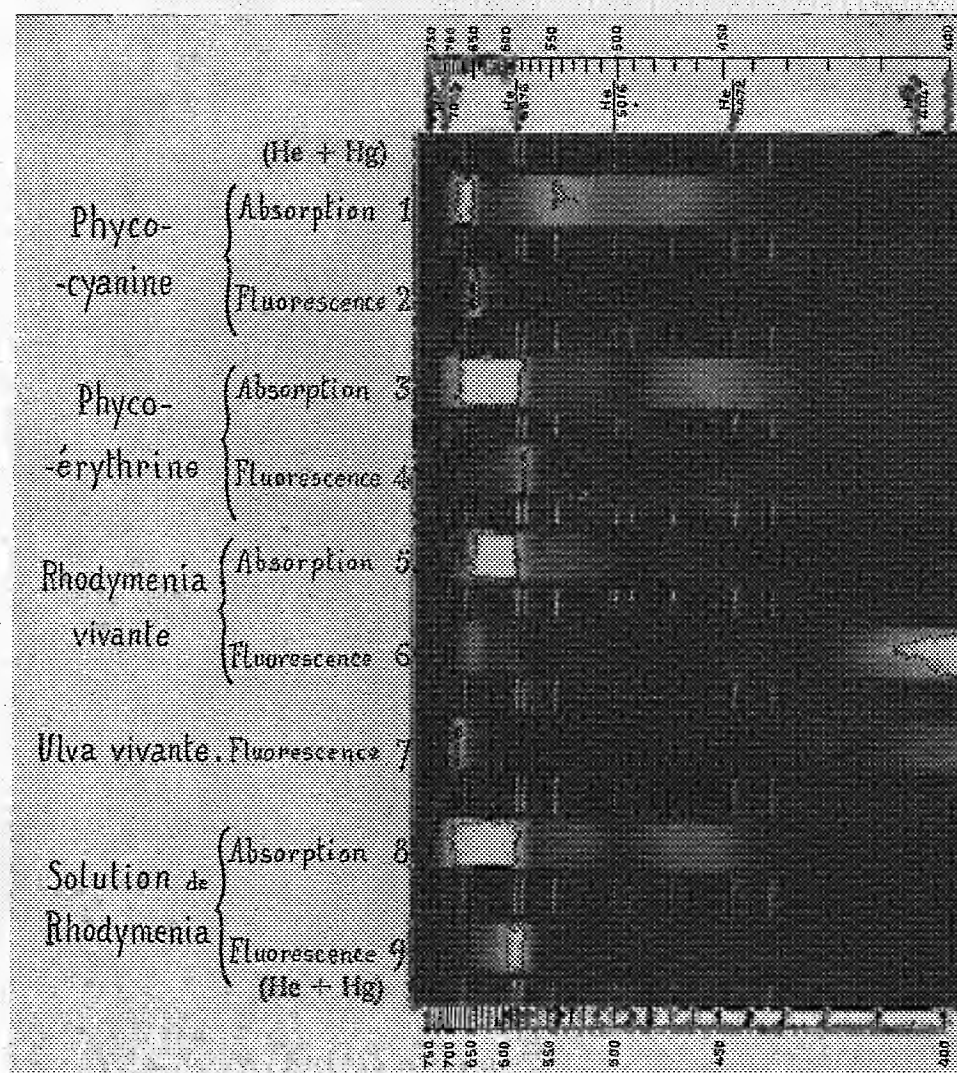 750 700 650 600 550 500 450 400
He 5016
(He + Hg)
Phyco-
-cyanine
Absorption 1
Fluorescence 2
Phyco-
-érythrine
Absorption 3
Fluorescence 4
Rhodymenia
vivante
Absorption 5
Fluorescence 6
Ulva vivante. Fluorescence 7
Solution de
Rhodymenia
Absorption 8
Fluorescence 9
(He + Hg)
750 700 650 600 550 500 450 400